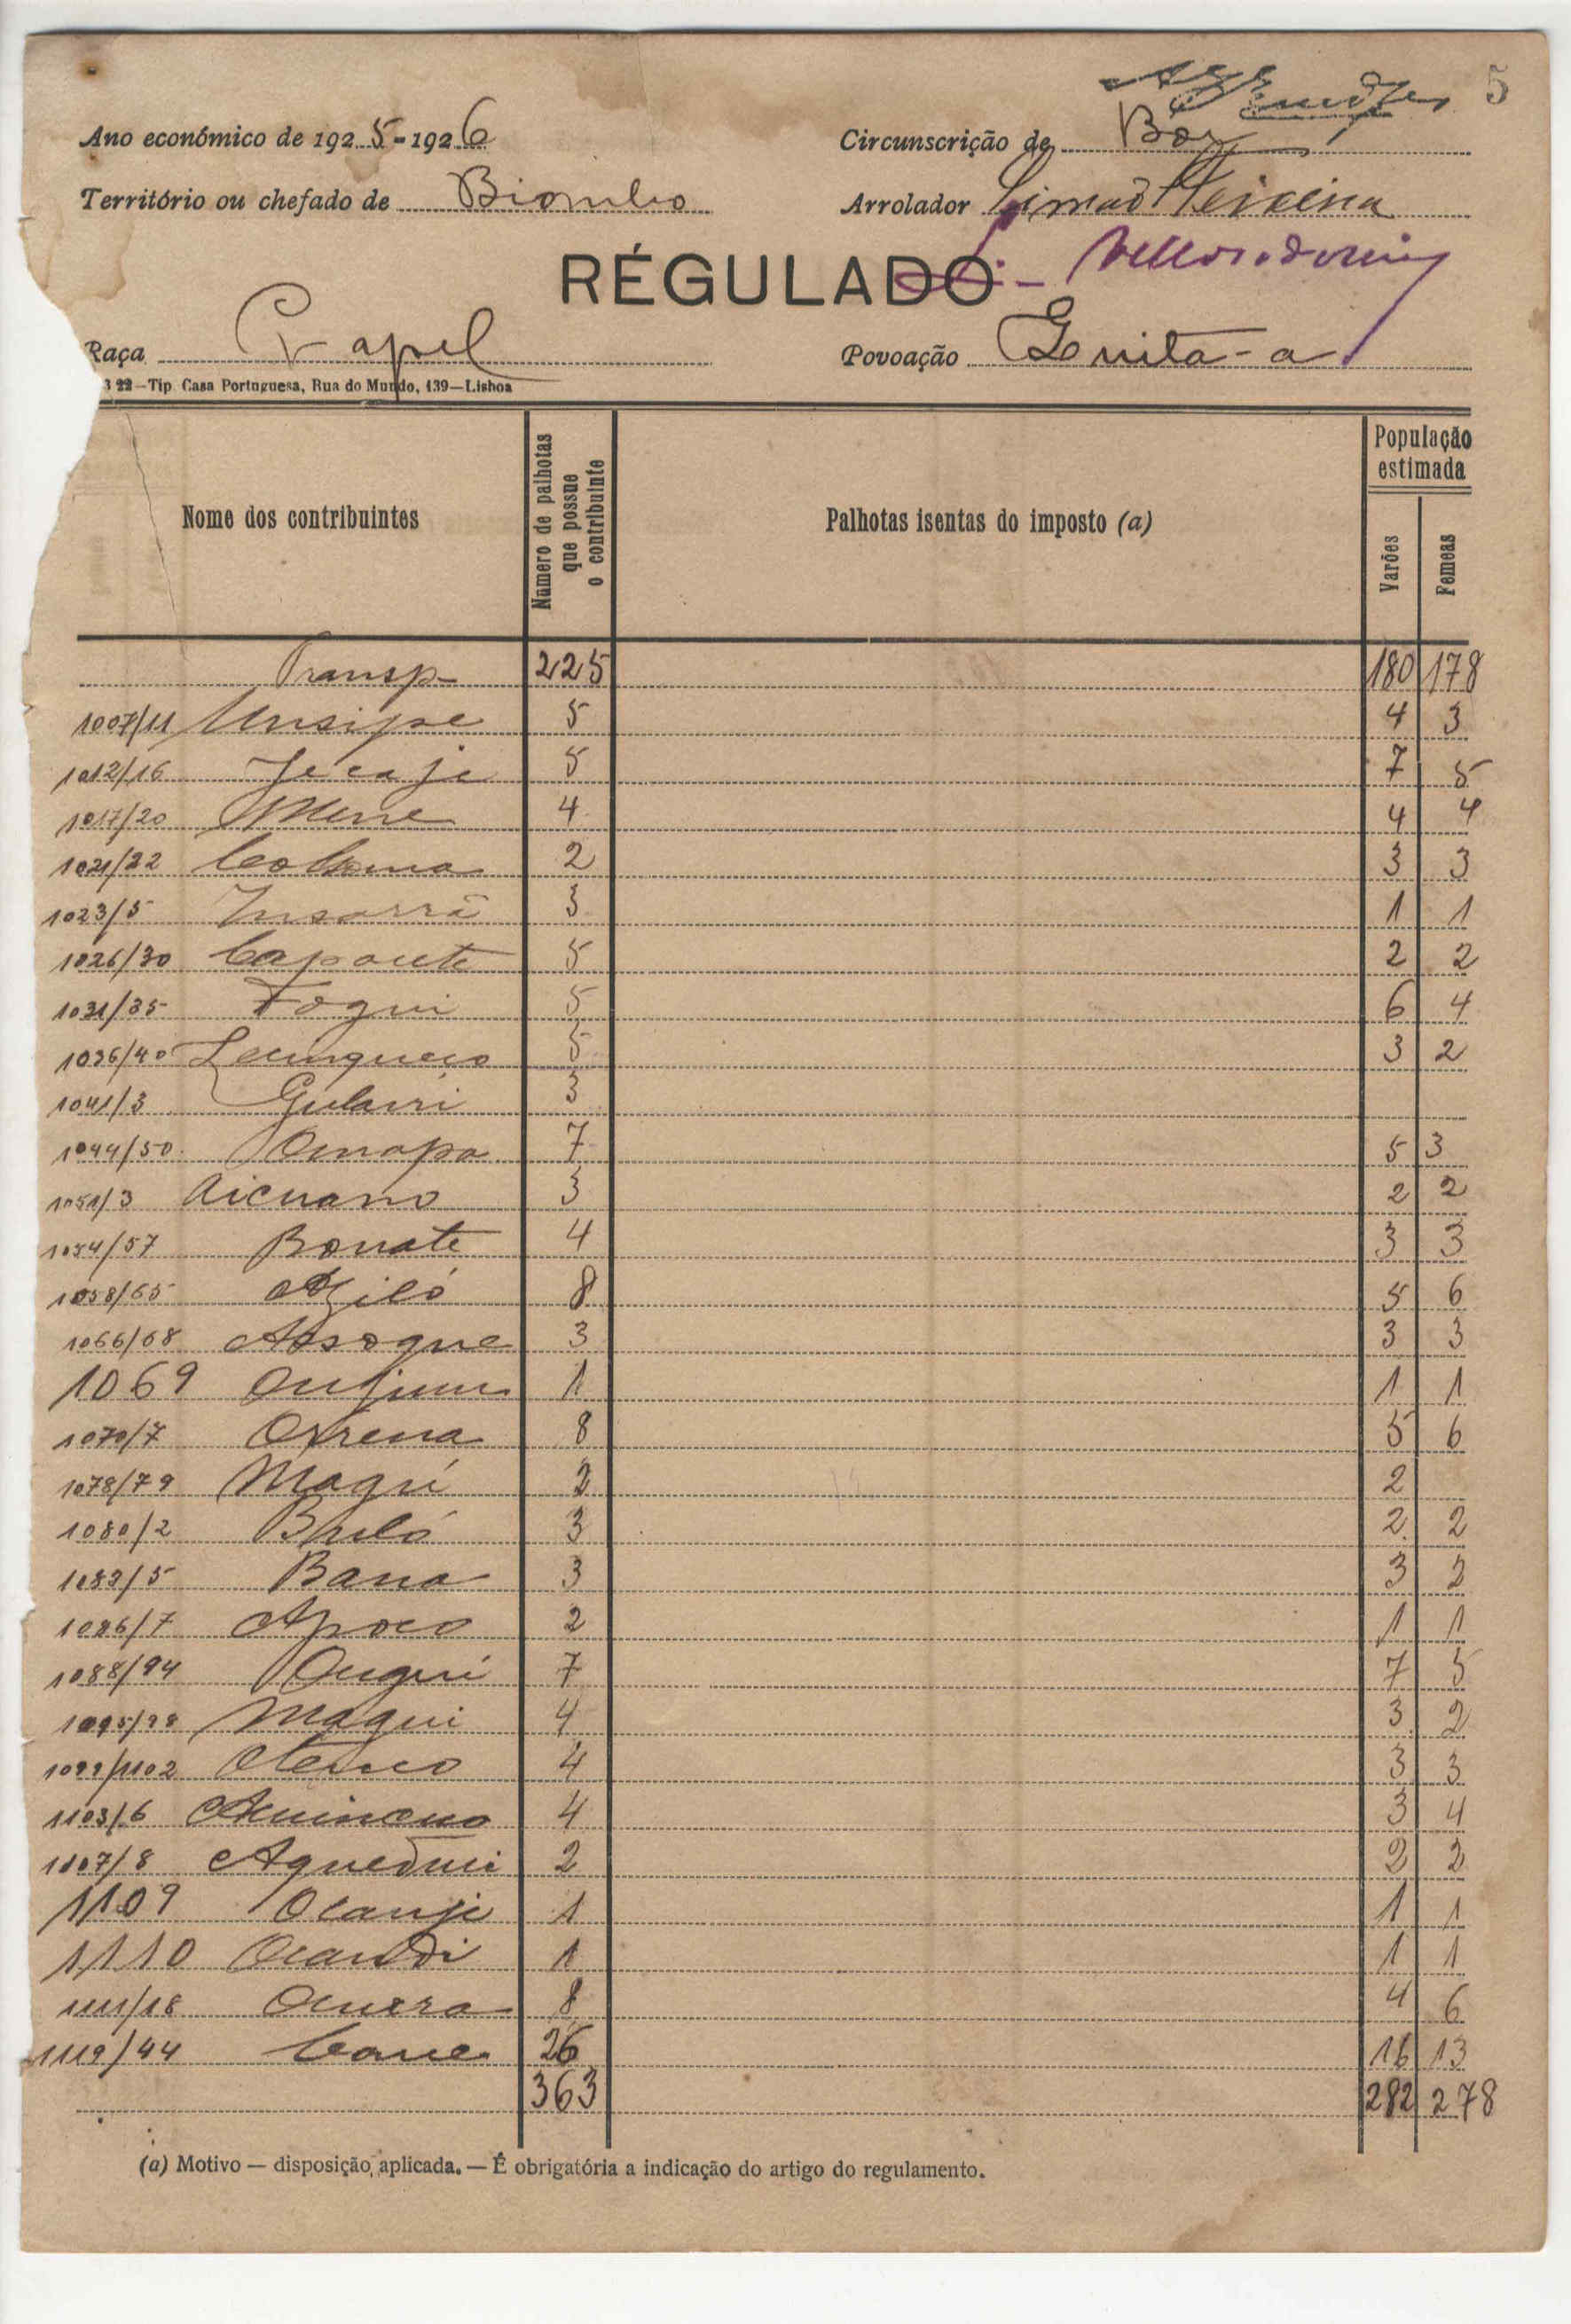 5
Ano económico de 1925-1926 Circunscrição de Bôr
Território ou chefado de Biombo Arrolador Simão Teixeira
RÉGULADO
Raça Papel Povoação Quita-a
3 22—Tip. Casa Portuguesa, Rua do Mundo, 139—Lisboa
Nome dos contribuintes Número de palhotas que possue o contribuinte Palhotas isentas do imposto (a) População estimada Varões Femeas
Transp. 225 180 178
1007/11 Unsipe 5 4 3
1012/16 Jecaje 5 7 5
1017/20 Mene 4 4 4
1021/22 2 3 3
1023/5 Insarrá 3 1 1
1026/30 Capoute 5 2 2
1031/35 Fogui 5 6 4
1036/40 5 3 2
1041/3 Gulairi 3
1044/50 Omapa 7 5 3
1051/3 Aicuano 3 2 2
1054/57 Bonate 4 3 3
1058/65 Aziló 8 5 6
1066/68 Assogue 3 3 3
1069 1 1 1
1070/7 8 5 6
1078/79 Magui 2 2
1080/2 3 2 2
1083/5 Bana 3 3 2
1086/7 Apoco 2 1 1
1088/94 Ougui 7 7 5
1095/98 Maqui 4 3 2
1099/1102 4 3 3
1103/6 4 3 4
1107/8 2 2 2
1109 Ocanji 1 1 1
1110 Ocandi 1 1 1
1111/18 8 4 6
1119/44 Cane 26 16 13
363 282 278
(a) Motivo — disposição aplicada. — É obrigatória a indicação do artigo do regulamento.